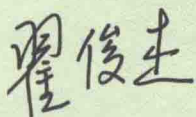 翟俊杰